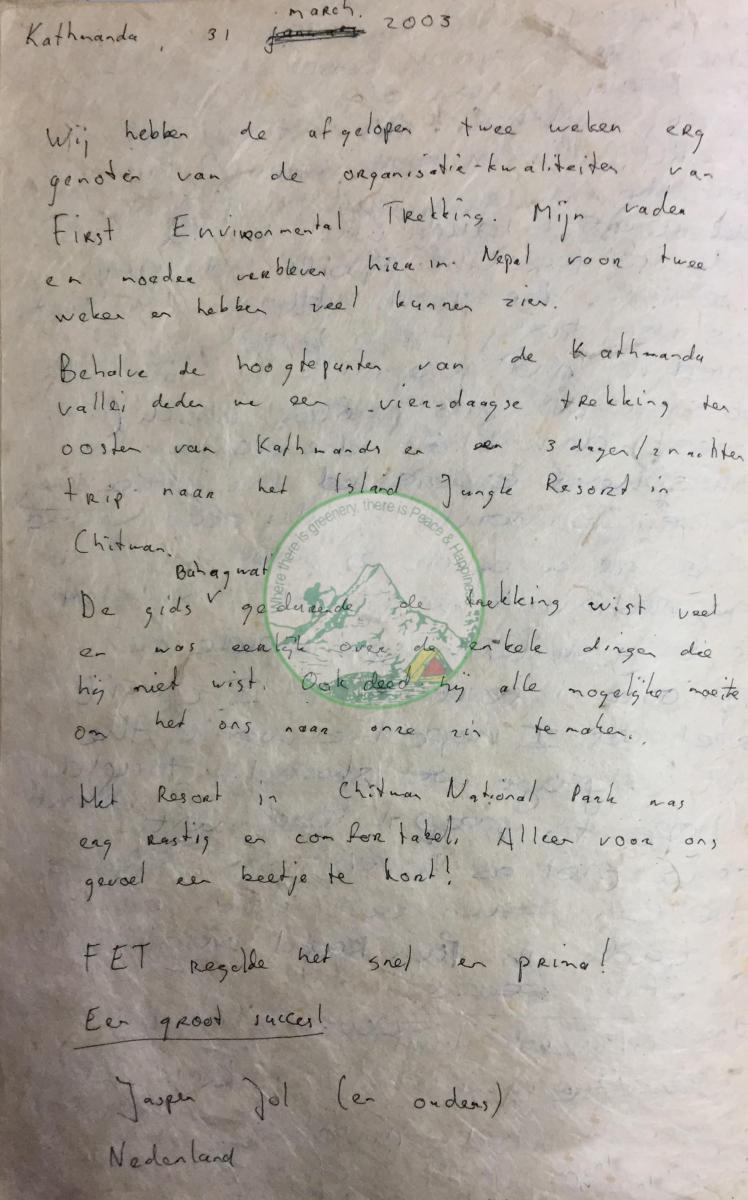 march.
Kathmanda, 31 2003
Wij hebben de afgelopen twee weken erg
genoten van de organisatie-kwaliteiten van
First Environmental Trekking. Mijn vader
en moeder verbleven hier in Nepal voor twee
weken en hebben veel kunnen zien.
Behalve de hoogtepunten van de Kathmandu
vallei deden we een vier-daagse trekking ten
oosten van Kathmandu en een 3 dagen/2 nachten
trip naar het Island Jungle Resort in
Chitwan.
Bahagwat
De gids gedurende de trekking wist veel
en was eerlijk over de enkele dingen die
hij niet wist. Ook deed hij alle mogelijke moeite
om het ons naar onze zin te maken.
Het Resort in Chitwan National Park was
erg rustig en comfortabel. Alleen voor ons
gevoel een beetje te kort!
FET regelde het snel en prima!
Een groot succes!
Jasper Jol (en ouders)
Nederland
Where there is greenery, there is Peace & Happiness